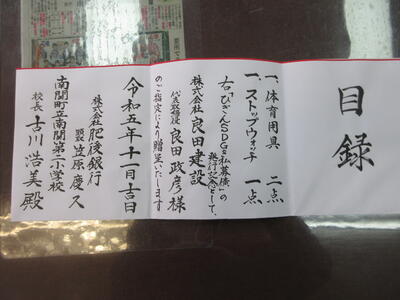 目録
一、体育用具 二点
一、ストップウォッチ 一点
右「ひぎんSDGs私募債」の
発行記念として、
株式会社 良田建設
代表取締役 良田政彦様
のご指定により贈呈いたします
令和五年十一月吉日
株式会社 肥後銀行
頭取 笠原慶久
南関町立南関第二小学校
校長 古川浩美殿